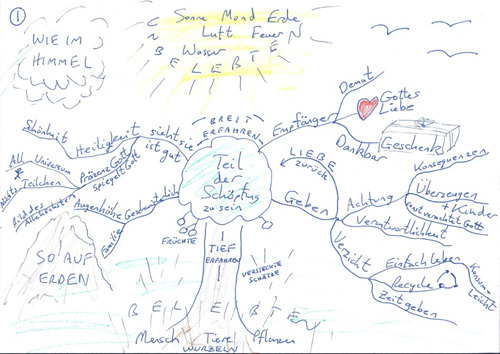 1
WIE IM
HIMMEL
Sonne Mond Erde
Luft Feuer
Wasser
UNBELEBTE
BREIT
ERFAHREN
Teil
der
Schöpfung
zu sein
sieht sie
ist gut
Heiligkeit
Schönheit
Präsenz Gott
spiegelt Gott
All Universum
Teilchen
Bild des
Allerhöchsten
Augenhöhe Geschwisterlich
Familie
FRÜCHTE
SO AUF
ERDEN
Empfänger
Demut
Gottes
Liebe
Dankbar
Geschenk
LIEBE
zurück
Geben
Achtung
Konsequenzen
Überzeugen
+ Kinder
Gott
Verantwortlichkeit
Verzicht
Einfach leben
Konsum-
Leicht
Recycle
Zeit geben
TIEF
ERFAHREN
VERSTECKTE
SCHÄTZE
BELEBTE
Mensch
Tiere
Pflanzen
WURZELN